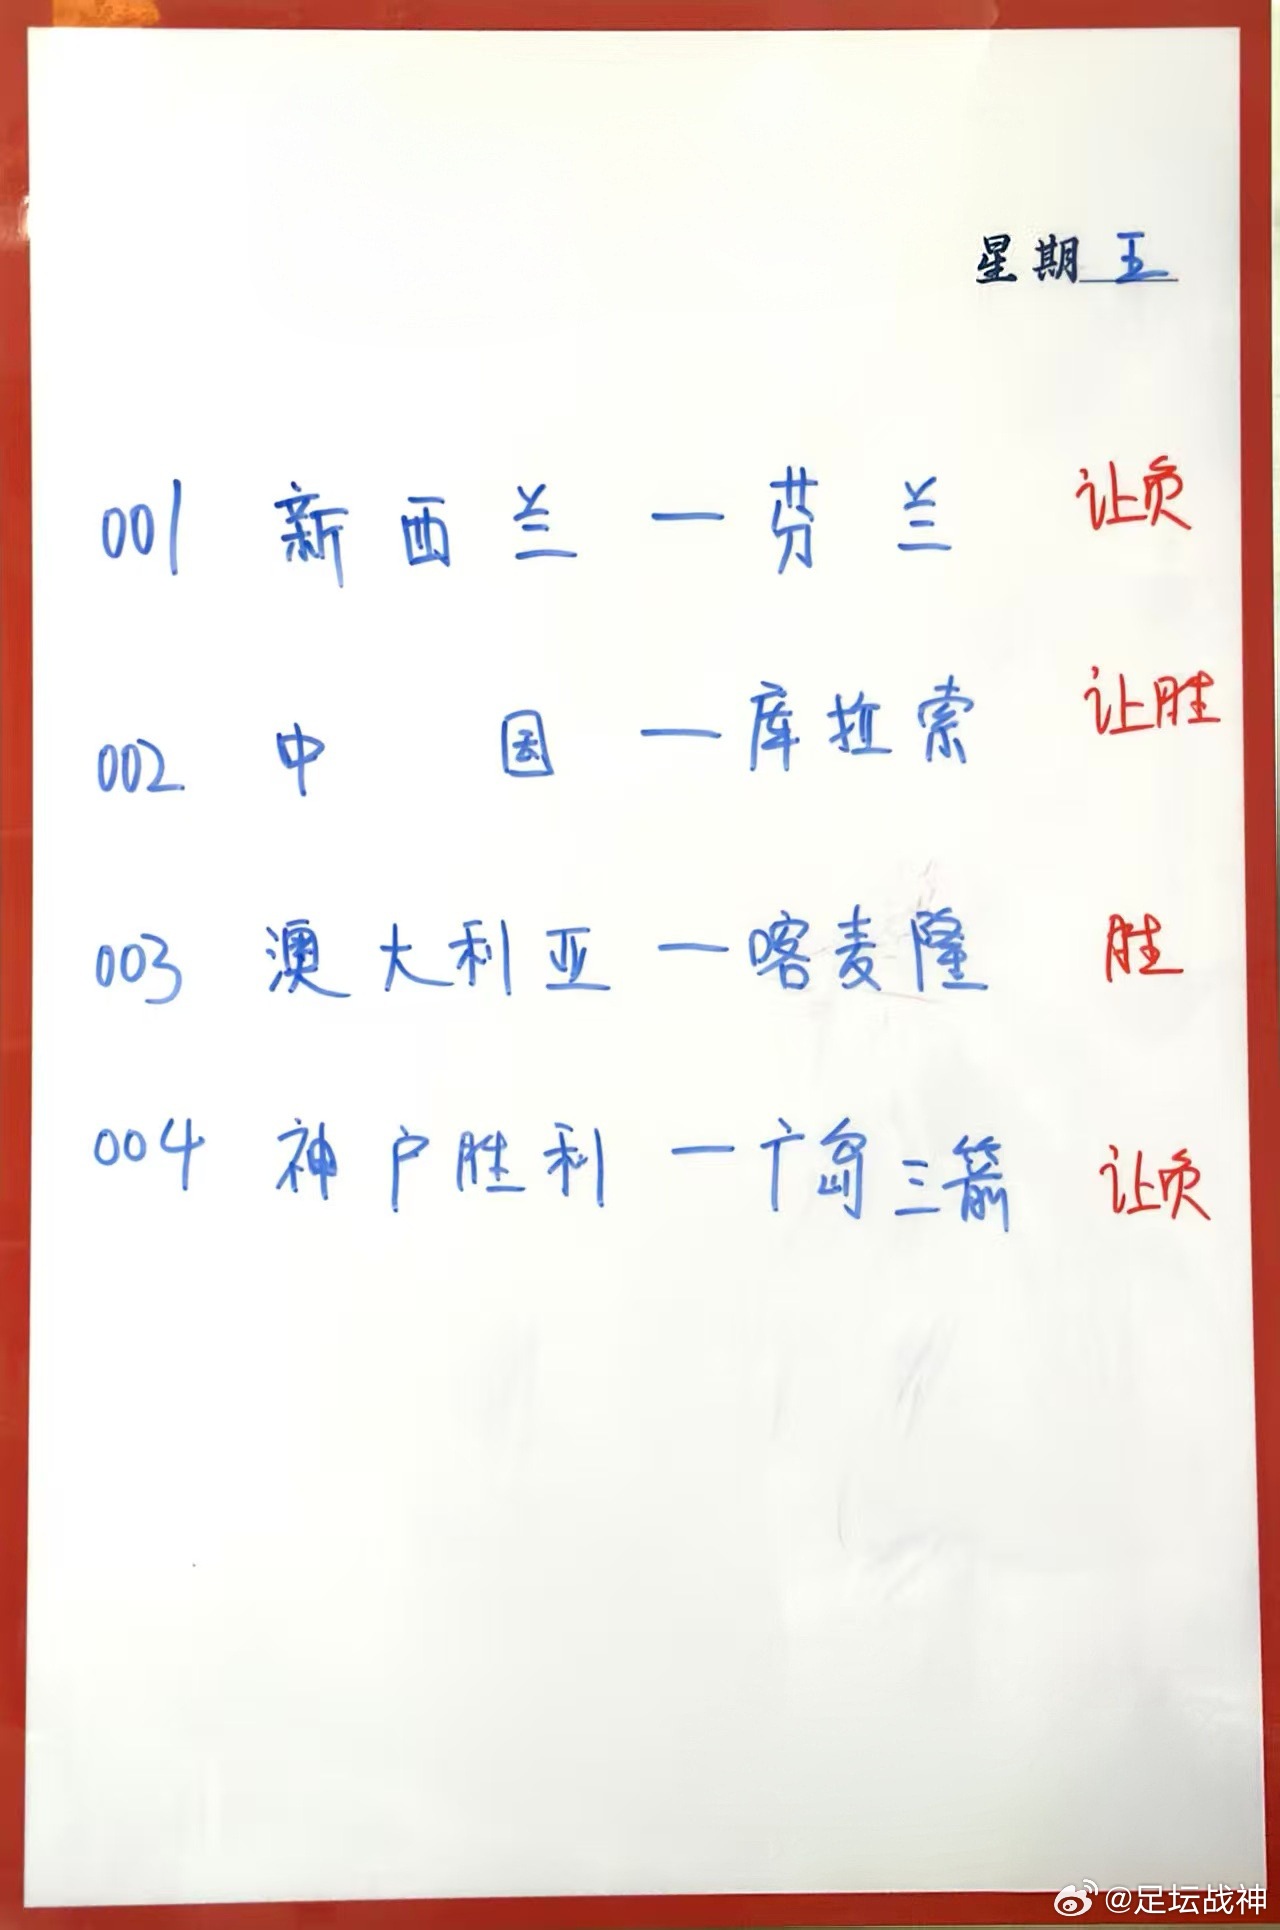 星期五
001 新西兰—芬兰 让负
002 中国—库拉索 让胜
003 澳大利亚—喀麦隆 胜
004 神户胜利—广岛三箭 让负
@足坛战神